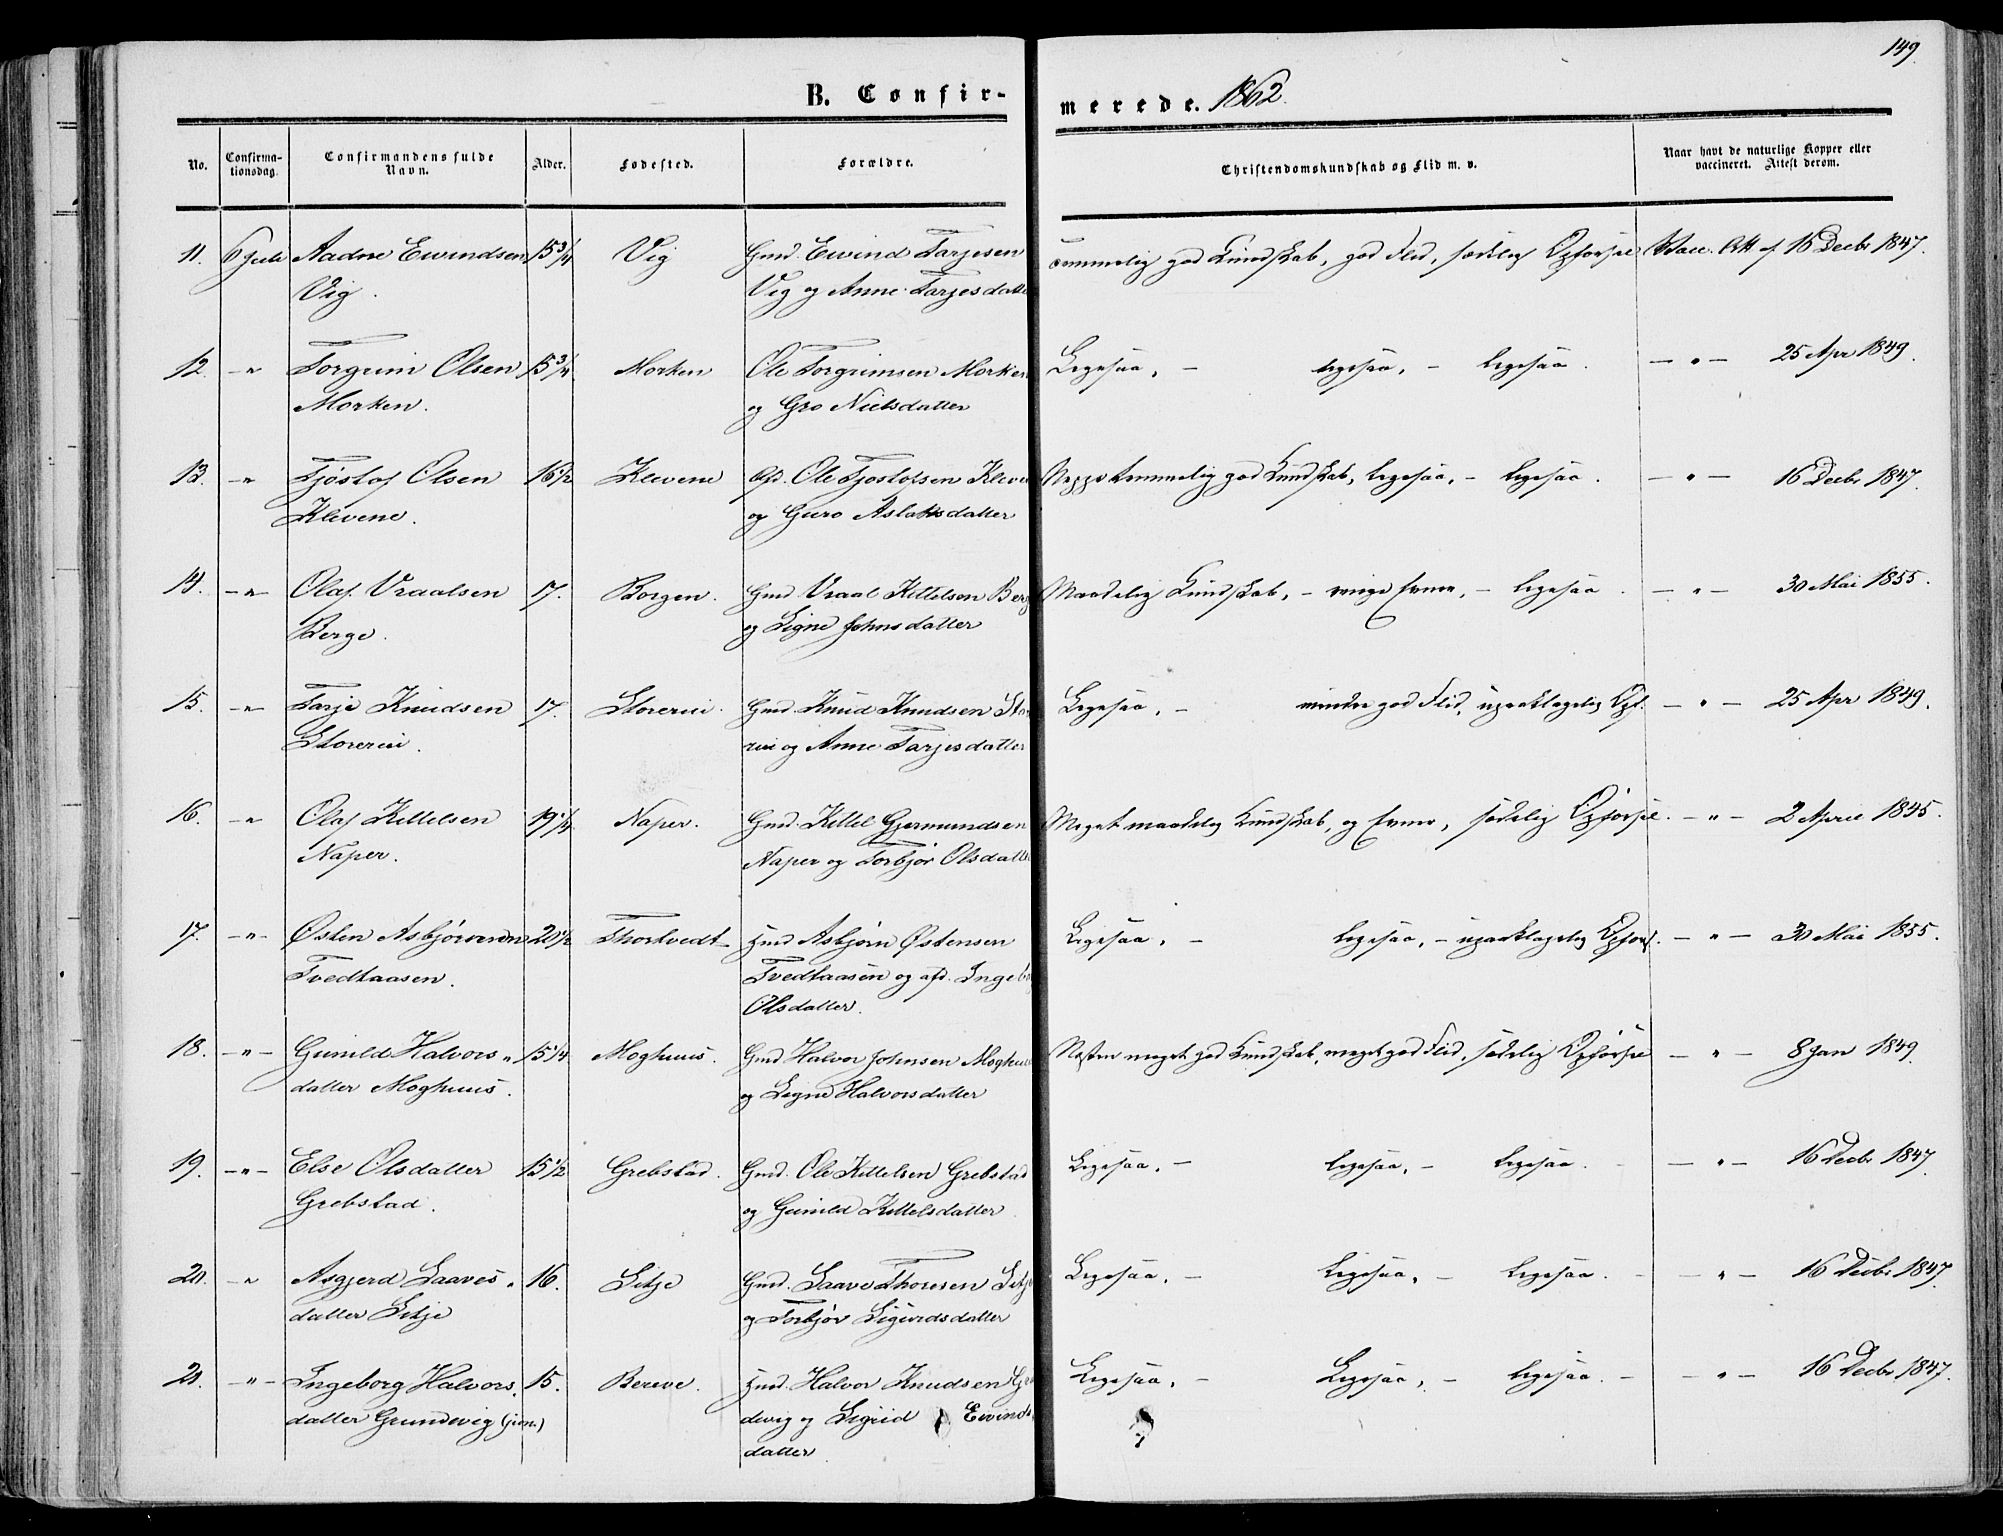 149
B. Confir-
merede. 1862.
No.
Confirma-
tionsdag.
Confirmandens fulde
Navn.
Alder.
Fødested.
Forældre.
Christendomskundskab og Flid m. v.
Naar havt de naturlige Kopper eller
vaccineret. Attest derom.
11. 6 Juli Aadne Eivindsen 15 3/4 Vig Gmd. Eivind Tarjesen Temmelig god Kundskab, god Flid, sædelig Opførsel Vacc. Att. af 16 Decbr 1847.
Vig. Vig og Anne Tarjesdatter
12. -"- Torgrim Olsen 15 3/4 Morken Ole Torgrimsen Morken Ligesaa, - ligesaa, - ligesaa. -"- 25 Apr 1849.
Morken. og Gro Nielsdatter
13. -"- Tjøstof Olsen 16 1/2 Klevene Afd. Ole Tjostofsen Kleve Neppe temmelig god Kundskab, ligesaa, - ligesaa. -"- 16 Decbr 1847.
Klevene. og Guro Aslaksdatter
14. -"- Olaf Vraalsen 17. Borgen. Gmd Vraal Kittelsen Berg Maadelig Kundskab, - ringe Evner, - ligesaa. -"- 30 Mai 1855.
Berge. og Signe Johnsdatter
15. -"- Tarje Knudsen 17. Storerui. Gmd. Knud Knudsen Sto Ligesaa, - mindre god Flid, upaaklagelig Opf. -"- 25 Apr 1849.
Storerui. rui og Anne Tarjesdatter
16. -"- Olaf Kittelsen 19 1/4 Naper. Gmd. Kittel Gjermundsen Meget maadelig Kundskab, og Evner, sædelig Opførsel. -"- 2 April 1845.
Naper. Naper og Torbjør Olsdatter
17. -"- Østen Asbjørnsen 20 1/2 Thortvedt Gmd Asbjørn Østensen Ligesaa, - ligesaa, - upaaklagelig Opførs. -"- 30 Mai 1855.
Tvedtaasen. Tvedtaasen og afd. Ingeb
Olsdatter.
18. -"- Gunild Halvors- 15 1/4 Moghuus. Gmd Halvor Johnsen Moghuu Næsten meget god Kundskab, meget god Flid, sædelig Opførsel -"- 8 Jan 1849.
datter Moghuus. og Signe Halvorsdatter
19. -"- Else Olsdatter 15 1/2 Grebstad. Gmd. Ole Kittelsen Grebstad Ligesaa, - ligesaa, - ligesaa. -"- 16 Decbr 1847.
Grebstad. og Gunild Kittelsdatter.
20. -"- Asgjerd Saaves- 16. Sitje Gmd. Saave Thoresen Sitje Ligesaa, - Ligesaa, - ligesaa. -"- 16 Decbr 1847.
datter Sitje og Torbjør Sigurdsdatter
21. -"- Ingeborg Halvors- 15. Bereve. Gmd. Halvor Knudsen G Ligesaa, - Ligesaa, - ligesaa. -"- 16 Decbr 1847.
datter Grundvig (jun.) dvig og Sigrid Eivinds
datter